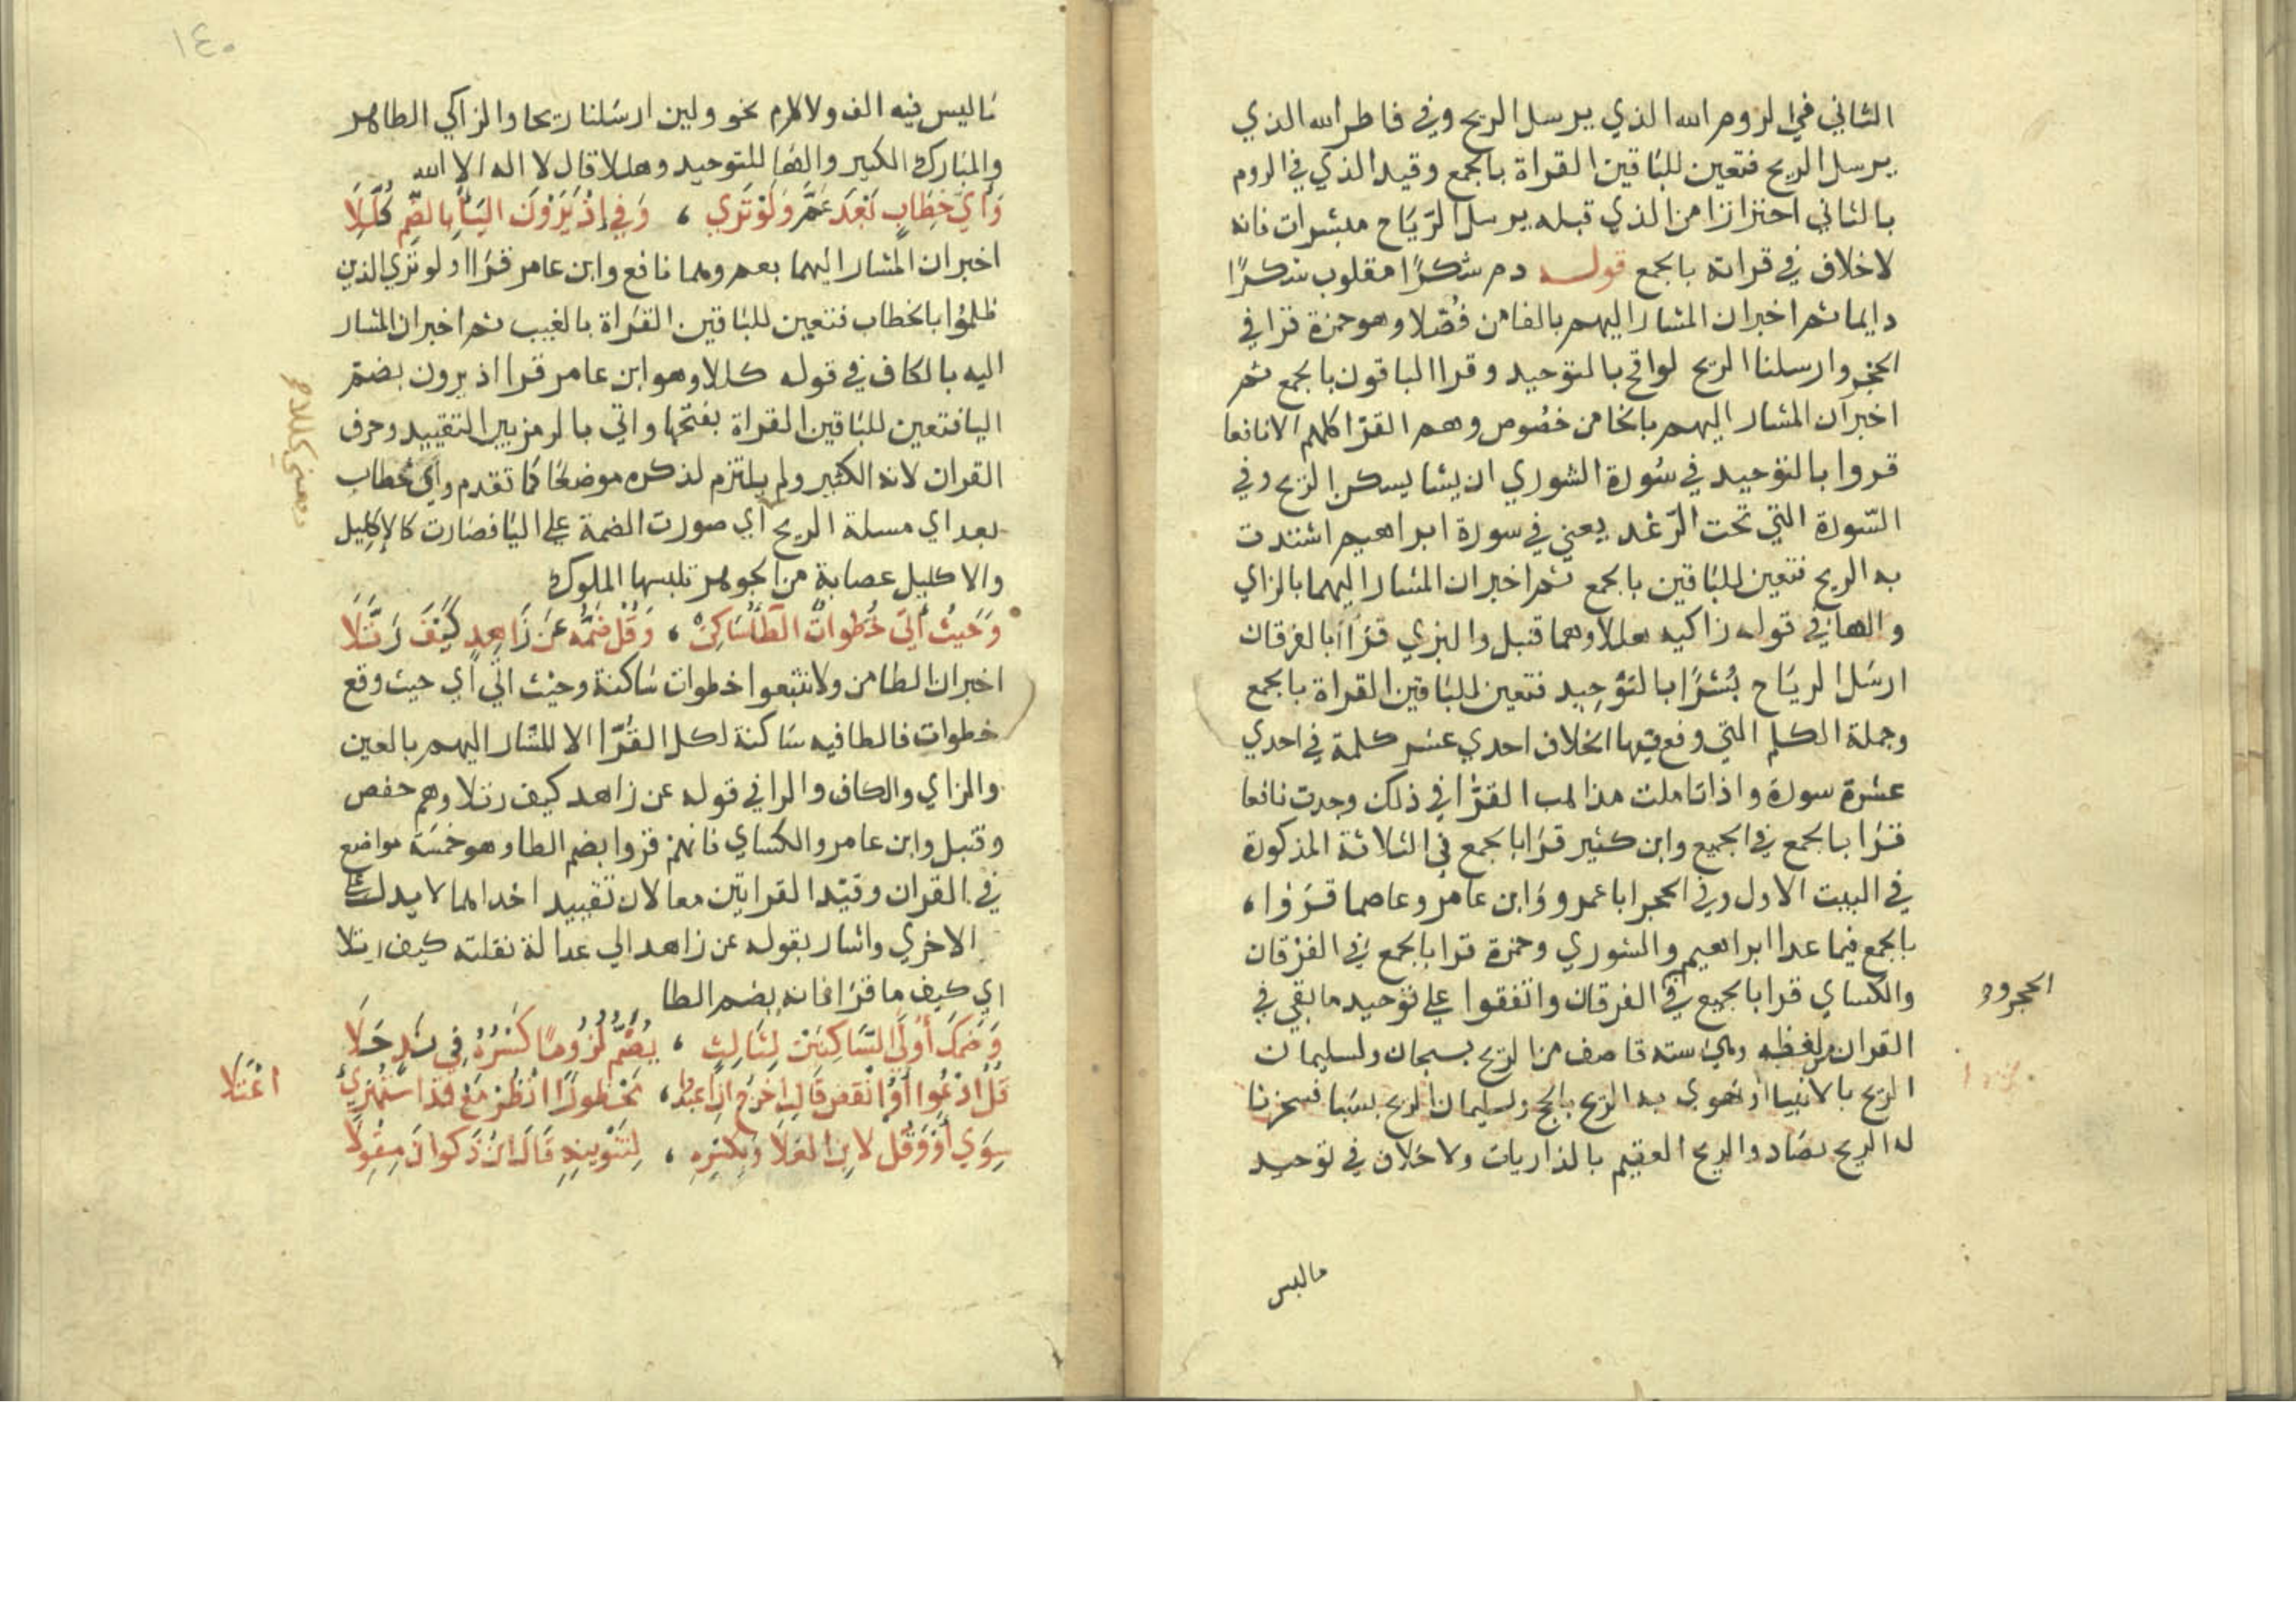 الثاني في الروم الله الذي يرسل الريح وفي فاطر الله الذي
يرسل الريح فتعين للباقين القراة بالجمع وقيد الذي في الروم
بالثاني احترازا من الذي قبله يرسل الرياح مبشرات فانه
لا خلاف في قراته بالجمع قوله دم شكرًا مقلوب شكرًا
دايما ثم اخبر ان المشار اليهم بالفا من فُصّلا وهو حمزة قرا في
الحجر وارسلنا الريح لواقح بالتوحيد وقرا الباقون بالجمع ثم
اخبر ان المشار اليهم بالخا من خصُوص وهم القرّا كلهم الا نافعا
قروا بالتوحيد في سُورة الشوري ان يشا يسكن الريح وفي
السّورة التي تحت الرّعد يعني في سورة ابراهيم اشتدت
به الريح فتعين للباقين بالجمع ثم اخبر ان المشار اليهما بالزاي
والها في قوله زاكيه هللا وهما قنبل والبزي قرَاا بالفرقان
ارسَل الريَاح بُشرًا بالتوْحِيد فتعين للباقين القراة بالجمع
وجملة الكلم التي وقع فيها الخلاف احدي عشر كلمة في احدي
عشرة سورة واذا تاملت مذاهب القرّا في ذلك وجدت نافعا
قرَا بالجمع في الجميع وابن كثير قرَا بالجمع في الثلاثة المذكورة
في البيت الاول وفي الحجر ابا عمرو وَابن عامر وعاصما قرَوا،
بالجمع فيما عدا ابراهيم والشوري وحمزة قرا بالجمع في الفرْقان
والكساي قرا بالجميع في الفرقان واتفقوا علي توْحيد ما بقي في
الحجر وو
القران من لفظه وهي ستة قاصف من الريح بسبحان ولسليمان
الريح بالانبيا او تهوي به الريح بالحج ولسليمان الريح بسَبا فسخرنا
له الريح بصَاد والريح العقيم بالذاريات ولا خلاف في توحيد
ماليس
١٤٠
مَاليس فيه الف ولا لام نحو ولين ارسَلنا ريحا والزاكي الطاهر
والمبارك الكبير والضها للتوحيد وهللا قال لا اله الا الله
وَأيّ خِطَابٍ بَعْدَ عَمَّ وَلَوْ تَرَي ، وَفي إذْ يَرَوْنَ اليَاُ بِالضَّمِّ كُلِّلَا
اخبر ان المشار اليهما بعم وهما نافع وابن عامر قرَاا ولو تري الذين
ظلمُوا بالخطاب فتعين للباقين القرَاة بالغيب ثم اخبر ان المشار
اليه بالكاف في قوله كللا وهو ابن عامر قرا اذ يرون بضمّ
اليا فتعين للباقين القراة بفتحها واتي بالرمز بين التقييد وحرف
القران لانه الكثير ولم يلتزم لذكره موضعًا كما تقدم وايّ خطاب
بعد اي مسلة الريح اي صورت الضمة علي اليا فصَارت كالاكليل
والاكليل عصابة من الجوهر تلبسها الملوك
وَحَيثُ أَتَي خُطواتٌ الطاءُ سَاكِنٌ ، وَقُلْ ضَمُّهُ عَن زَاهِدٍ كَيْفَ رَتَّلَا
اخبر ان الطا من ولا تتبعوا خطوات سَاكنة وحيْث اتي اي حيث وقع
خطوات فالطا فيه سَاكنة لكل القُرّا الا المشار اليهم بالعين
والزاي والكاف والرا في قوله عن زاهد كيف رتلا وهم حفص
وقنبل وابن عامر والكساي فانهم قروا بضم الطا وهو خمسَة مواضع
في القران وقيّد القراتين معا لان تقييد احداهما لا يدل علي
الاخري واشار بقوله عن زاهد الي عدالة نقلته كيف رتلا
اي كيف ما قرَا فانه بضم الطا
وَضَمكَ أُوْلَي السَّاكِنَيْن لِثَالِثٍ ، يُضَمُّ لُزُومًا كَسْرُهُ فِي نَدٍ حَلَا
قُلُ ادْعُوا أوُ انْقُصْ قَالتِ اخْرُجْ أنِ اعْبُدُوا ، مَحْظورًا انْظُرْ مَعْ قَدِ اسْتُهْزِيَ
اعْتَلَا
سِوَي أوْ وَقُلْ لابْنِ العَلَا وَبِكَسْرِهِ ، لِتَنْوِينِهِ قَالَ ابْنُ ذَكْوانَ مِقْوَلَا